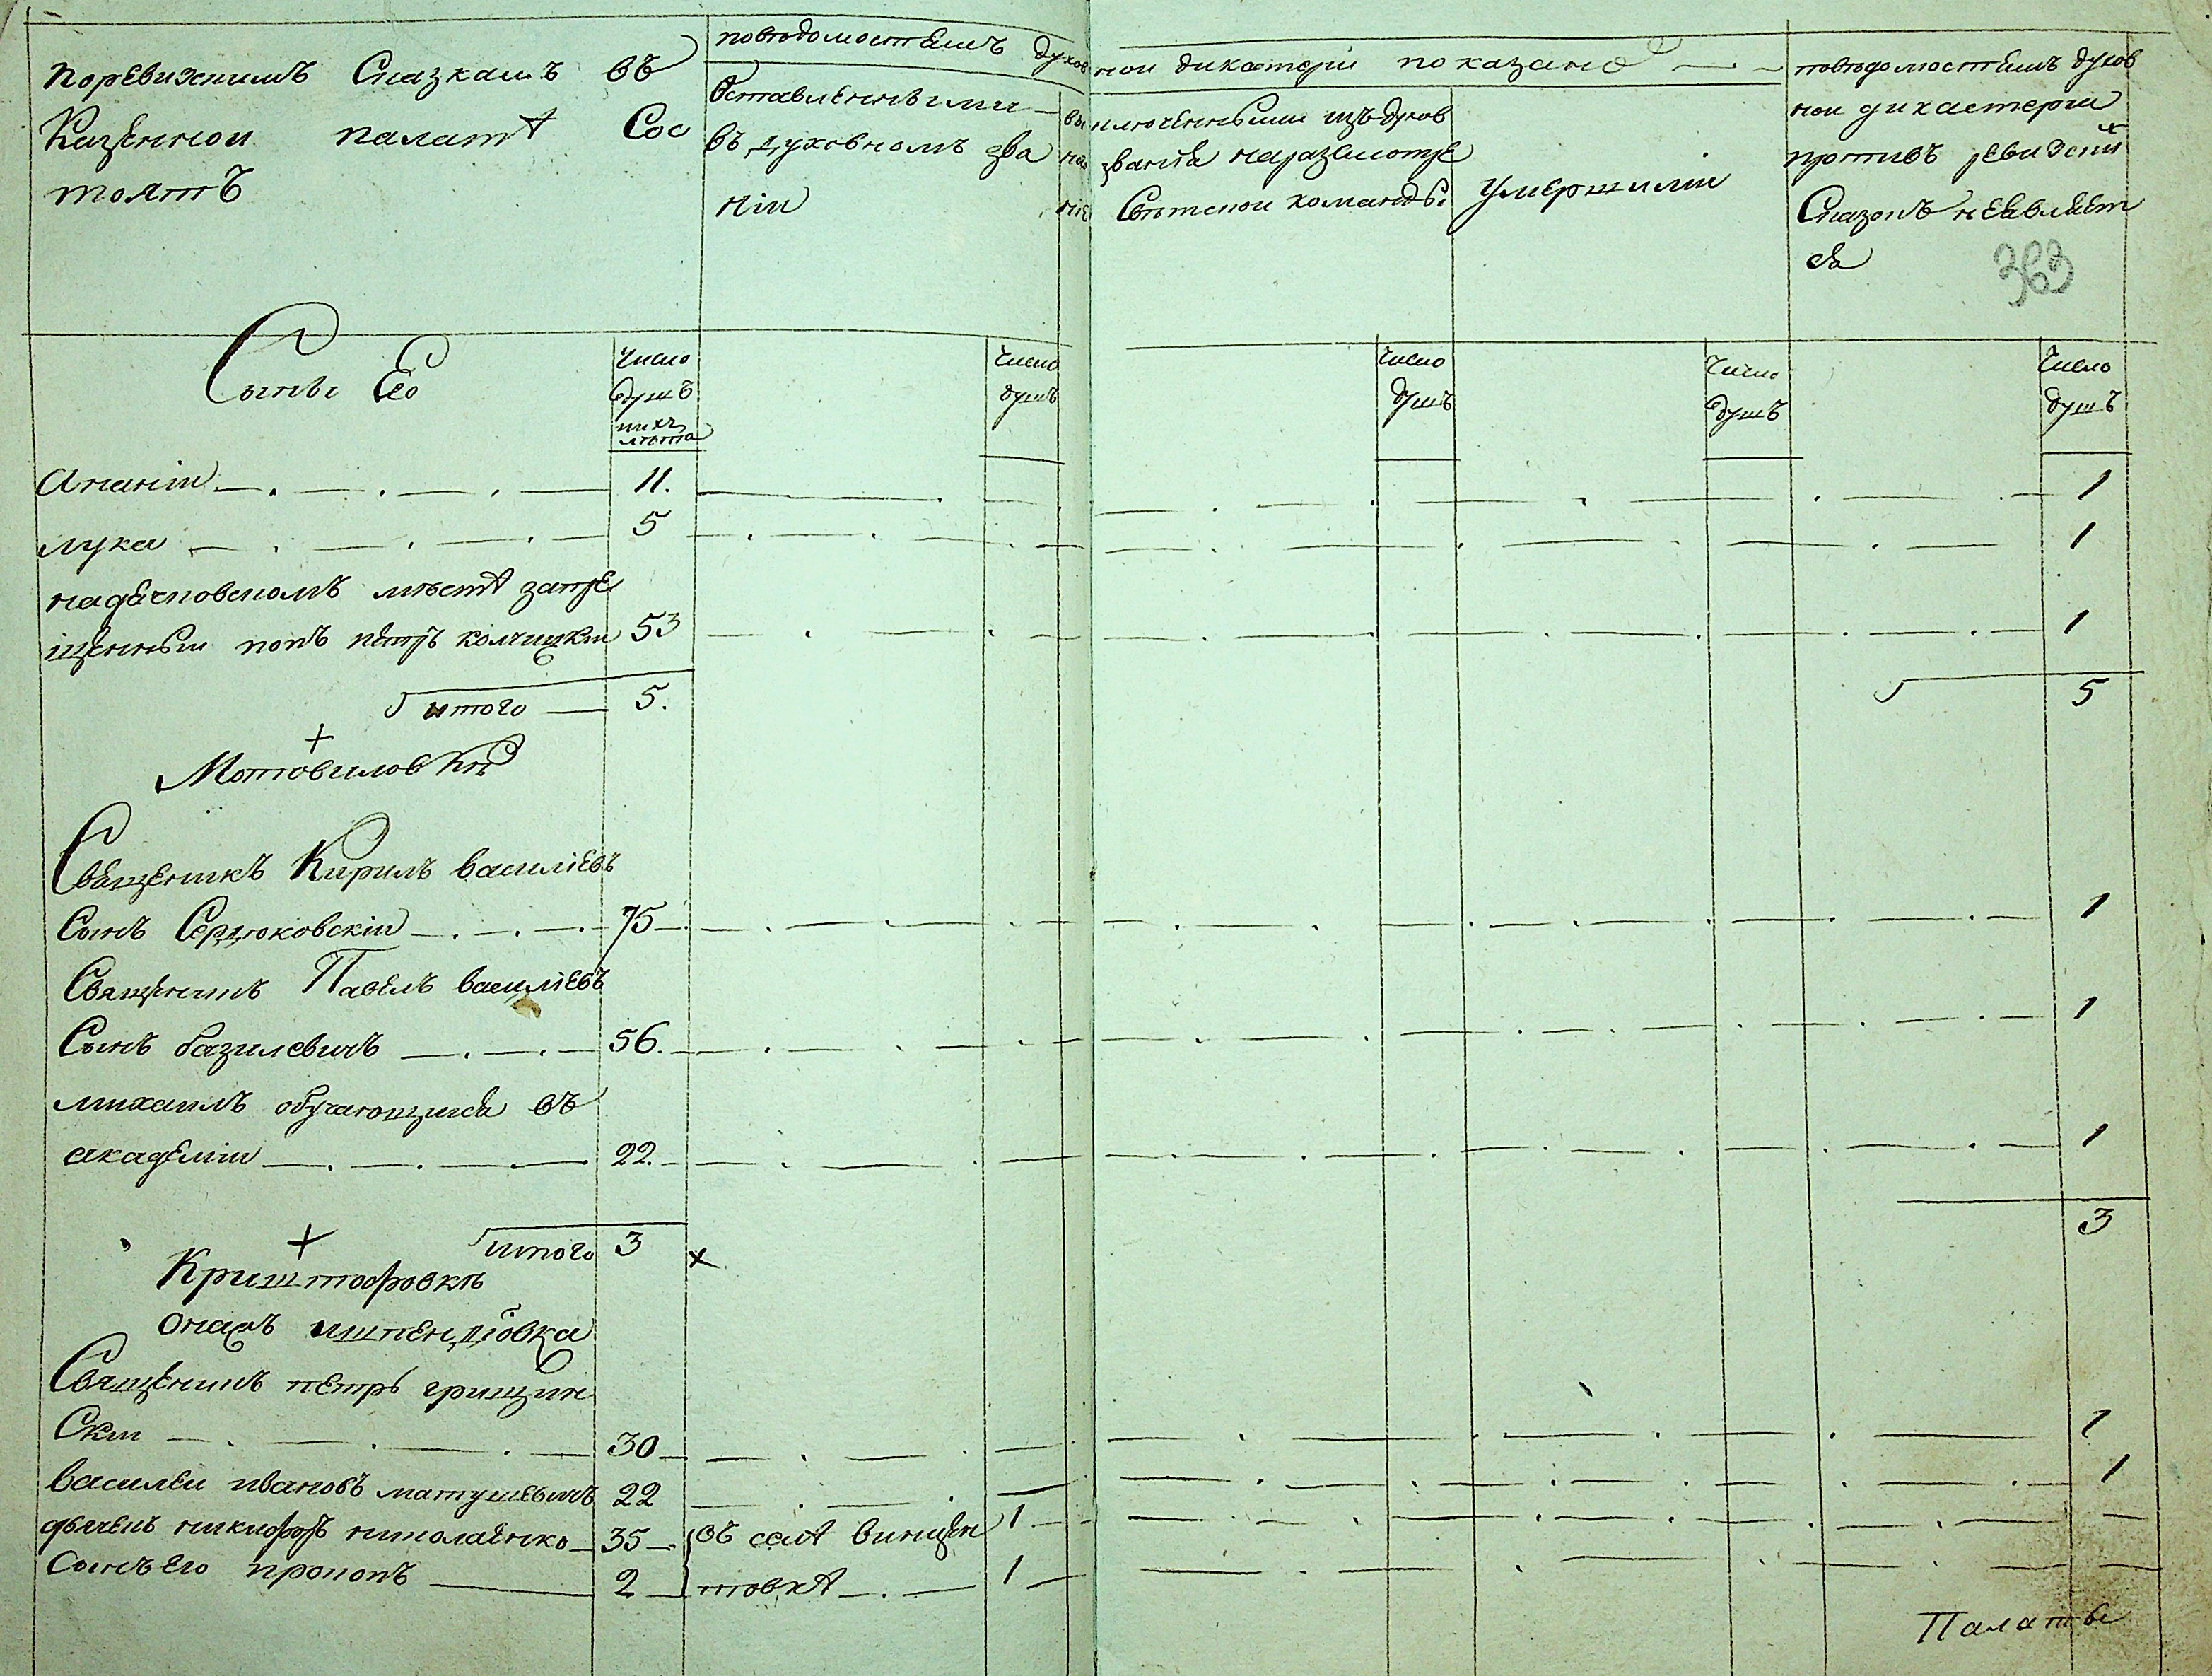 поревизскимъ Сказкамъ въ
Казенной палатѣ Сос
тоятъ
поведомостямъ духов
ной дикастерiи показано
Оставленными
въ духовномъ зва
нiи
вы
ключенными изъ духов
званiя наразсмотре
нiе
Светской команды
умершими
поведомостямъ духов
ной дикастерiи
противъ ревизскихъ
Сказокъ неявляет
ся
363
Сыны Его
число
душъ
ихъ
лѣта
число
душъ
число
душъ
число
душъ
число
душъ
Ананiй 11. 1
лука 5 1
надячковскомъ мѣстѣ запре
щенный попъ петръ колчицкiй 53 1
итого 5. 5
Мотовиловки
Священикъ Кирилъ василiевъ
Сынъ Сердюковскiй 75 1
Священикъ Павелъ василiевъ
Сынъ базилевичъ 56. 1
михаилъ обучающийся въ
академiи 22. 1
итого 3 3
Криштофовкѣ
онажъ ишпендiовка
Священикъ петръ грищин
Скiй 30 1
василей ивановъ матушевичъ 22 1
дьячекъ никифоръ николаенко 35 въ селѣ винцен 1
Сынъ его прокопъ 2 товкѣ 1
Палаты